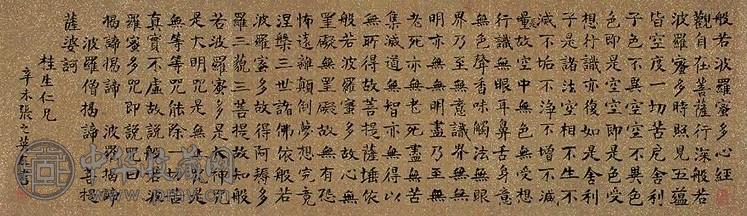 般若波羅蜜多心經
觀自在菩薩行深般若
波羅蜜多時照見五蘊
皆空度一切苦厄舍利
子色不異空空不異色
色即是空空即是色受
想行識亦復如是舍利
子是諸法空相不生不
滅不垢不淨不增不減
是故空中無色無受想
行識無眼耳鼻舌身意
無色聲香味觸法無眼
界乃至無意識界無無
明亦無無明盡乃至無
老死亦無老死盡無苦
集滅道無智亦無得以
無所得故菩提薩埵依
般若波羅蜜多故心無
罣礙無罣礙故無有恐
怖遠離顛倒夢想究竟
涅槃三世諸佛依般若
波羅蜜多故得阿耨多
羅三藐三菩提故知般
若波羅蜜多是大神咒
是大明咒是無上咒是
無等等咒能除一切苦
真實不虛故說般若波
羅蜜多咒即說咒曰
揭諦揭諦 波羅揭諦
波羅僧揭諦 菩提
薩婆訶
桂生仁兄
辛未張之
中华收藏网